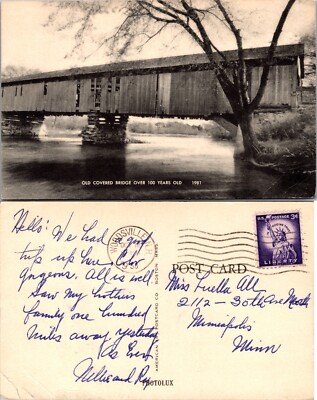 OLD COVERED BRIDGE OVER 100 YEARS OLD 1981
Hello: We had a good
trip up here. Color
gorgeous. All is well.
Saw my brothers
family one hundred
miles away yesterday
As Ever
Nellie and Ray
AMERICAN ART POST CARD CO. BOSTON, MASS.
U.S. POSTAGE 3¢
LIBERTY
POST CARD
Miss Luella Alt
2112 - 30th Ave North
Minneapolis
Minn
PHOTOLUX